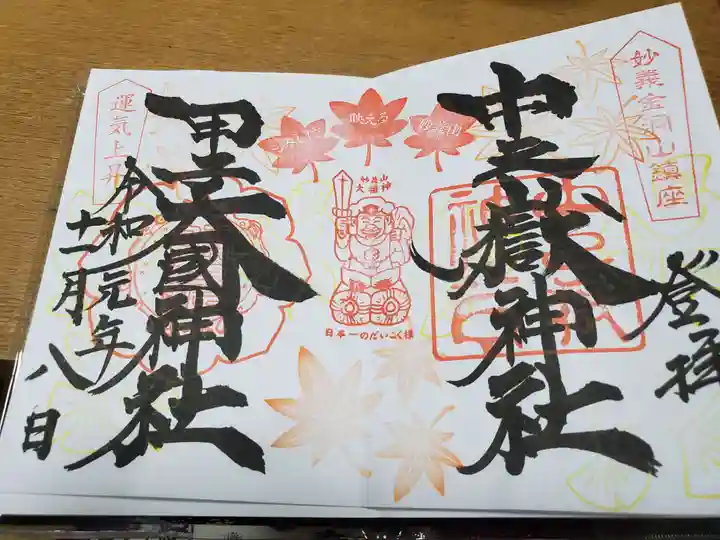 妙義金洞山鎮座
登拝
中之嶽神社
映える
妙義山
妙義山
大国神
日本一のだいこく様
甲子大國神社
運気上昇
令和元年
十一月八日